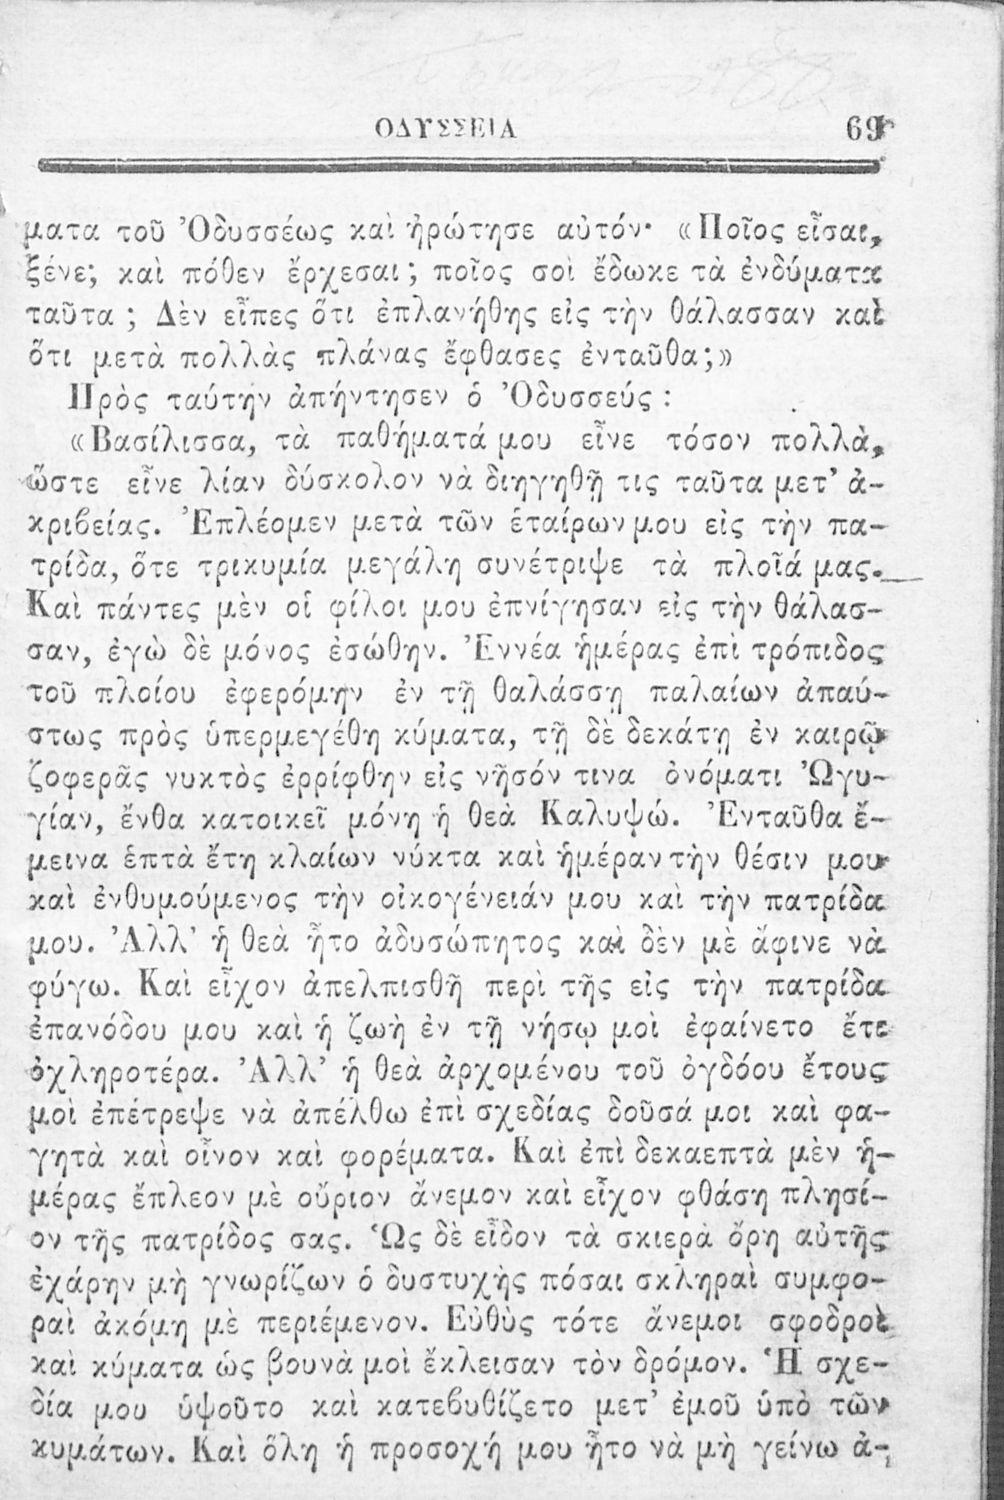 ΟΔΥΣΣΕΙΑ 69
ματα τοῦ Ὀδυσσέως καὶ ἠρώτησε αὐτόν· «Ποῖος εἶσαι,
ξένε; καὶ πόθεν ἔρχεσαι; ποῖος σοὶ ἔδωκε τὰ ἐνδύματα
ταῦτα ; Δὲν εἶπες ὅτι ἐπλανήθης εἰς τὴν θάλασσαν καὶ
ὅτι μετὰ πολλὰς πλάνας ἔφθασες ἐνταῦθα;»
Πρὸς ταύτην ἀπήντησεν ὁ Ὀδυσσεύς :
«Βασίλισσα, τὰ παθήματά μου εἶνε τόσον πολλὰ,
ὥστε εἶνε λίαν δύσκολον νὰ διηγηθῇ τις ταῦτα μετ’ ἀ-
κριϐείας. Ἐπλέομεν μετὰ τῶν ἑταίρων μου εἰς τὴν πα-
τρίδα, ὅτε τρικυμία μεγάλη συνέτριψε τὰ πλοῖά μας.
Καὶ πάντες μὲν οἱ φίλοι μου ἐπνίγησαν εἰς τὴν θάλασ-
σαν, ἐγὼ δὲ μόνος ἐσώθην. Ἐννέα ἡμέρας ἐπὶ τρόπιδος
τοῦ πλοίου ἐφερόμην ἐν τῇ θαλάσσῃ παλαίων ἀπαύ-
στως πρὸς ὑπερμεγέθη κύματα, τῇ δὲ δεκάτῃ ἐν καιρῷ
ζοφερᾶς νυκτὸς ἐρρίφθην εἰς νῆσόν τινα ὀνόματι Ὠγυ-
γίαν, ἔνθα κατοικεῖ μόνη ἡ θεὰ Καλυψώ. Ἐνταῦθα ἔ-
μεινα ἑπτὰ ἔτη κλαίων νύκτα καὶ ἡμέραν τὴν θέσιν μου
καὶ ἐνθυμούμενος τὴν οἰκογένειάν μου καὶ τὴν πατρίδα
μου. Ἀλλ’ ἡ θεὰ ἦτο ἀδυσώπητος καὶ δὲν μὲ ἄφινε νὰ
φύγω. Καὶ εἶχον ἀπελπισθῆ περὶ τῆς εἰς τὴν πατρίδα
ἐπανόδου μου καὶ ἡ ζωὴ ἐν τῇ νήσῳ μοὶ ἐφαίνετο ἔτι
ὀχληροτέρα. Ἀλλ’ ἡ θεὰ ἀρχομένου τοῦ ὀγδόου ἔτους
μοὶ ἐπέτρεψε νὰ ἀπέλθω ἐπὶ σχεδίας δοῦσά μοι καὶ φα-
γητὰ καὶ οἶνον καὶ φορέματα. Καὶ ἐπὶ δεκαεπτὰ μὲν ἡ-
μέρας ἔπλεον μὲ οὔριον ἄνεμον καὶ εἶχον φθάση πλησί-
ον τῆς πατρίδος σας. Ὡς δὲ εἶδον τὰ σκιερὰ ὄρη αὐτῆς
ἐχάρην μὴ γνωρίζων ὁ δυστυχὴς πόσαι σκληραὶ συμφο-
ραὶ ἀκόμη μὲ περιέμενον. Εὐθὺς τότε ἄνεμοι σφοδροὶ
καὶ κύματα ὡς βουνὰ μοὶ ἔκλεισαν τὸν δρόμον. Ἡ σχε-
δία μου ὑψοῦτο καὶ κατεϐυθίζετο μετ’ ἐμοῦ ὑπὸ τῶν
κυμάτων. Καὶ ὅλη ἡ προσοχή μου ἦτο νὰ μὴ γείνω ἀ-